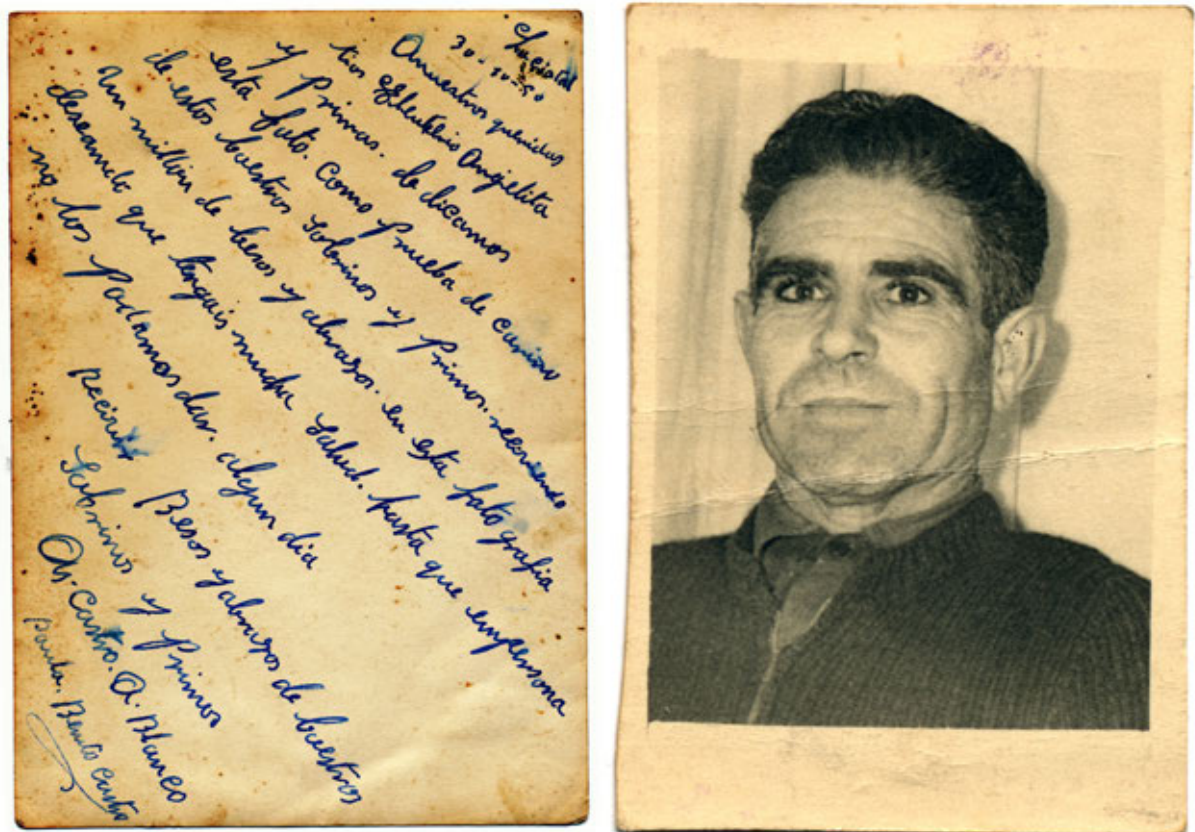 30-10-50
Anuestros queridos
tios Eleuterio Angelita
y Primas. de dicamos
esta foto. Como Prueba de cariño
de estos buestros Sobrinos y Primos. recibiendo
un millon de besos y abrazos. en esta foto grafia
deseando que tengais mucha Salud. hasta que empersona
no los Podamos dar. algun dia
Recibir Besos y abrazos de buestros
Sobrinos y Primos
As. Castro. A. Blanco
Benito Castro